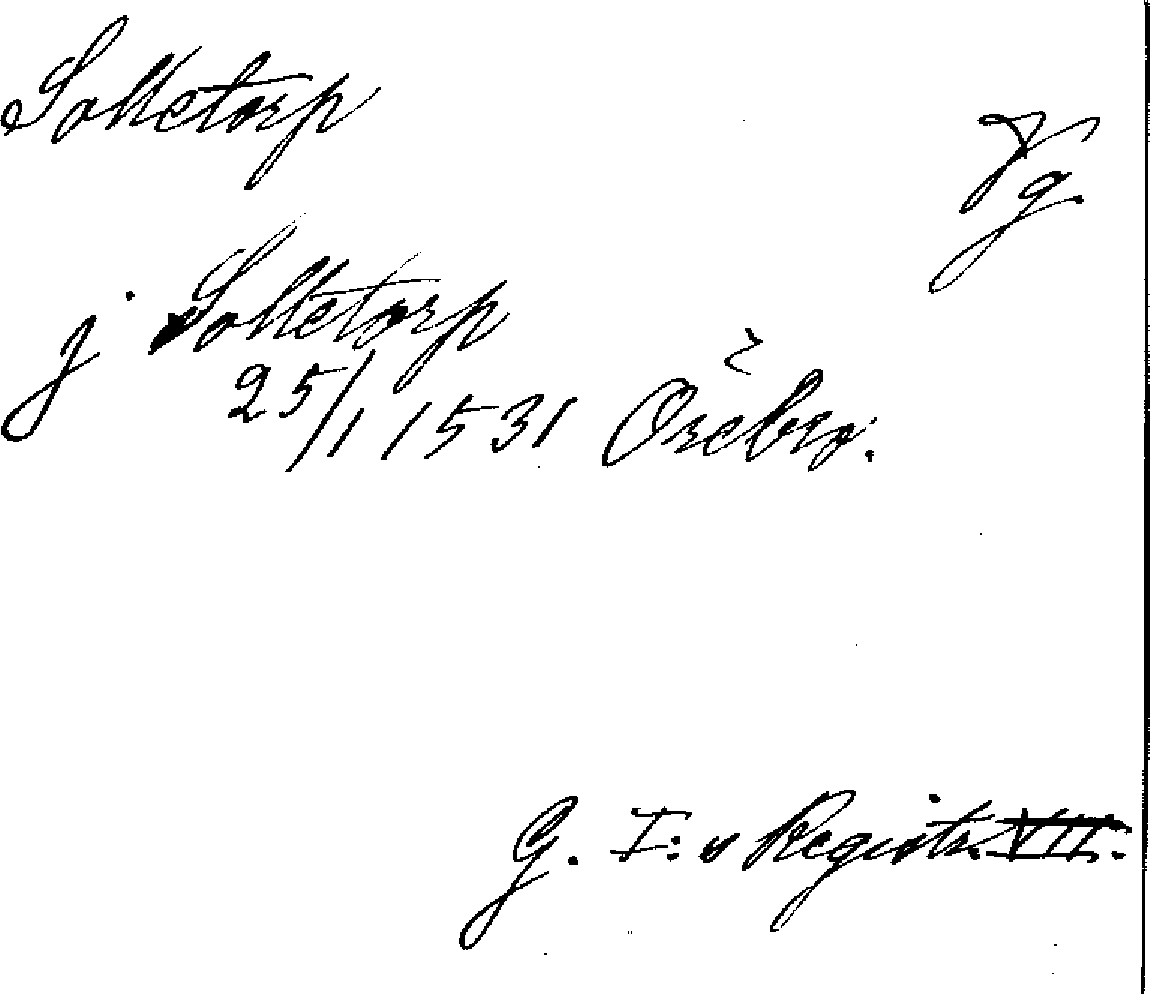 Solletorp
Vg.
j Solletorp
25/1 1531 Örebro.
G. I: s Registr. VII.